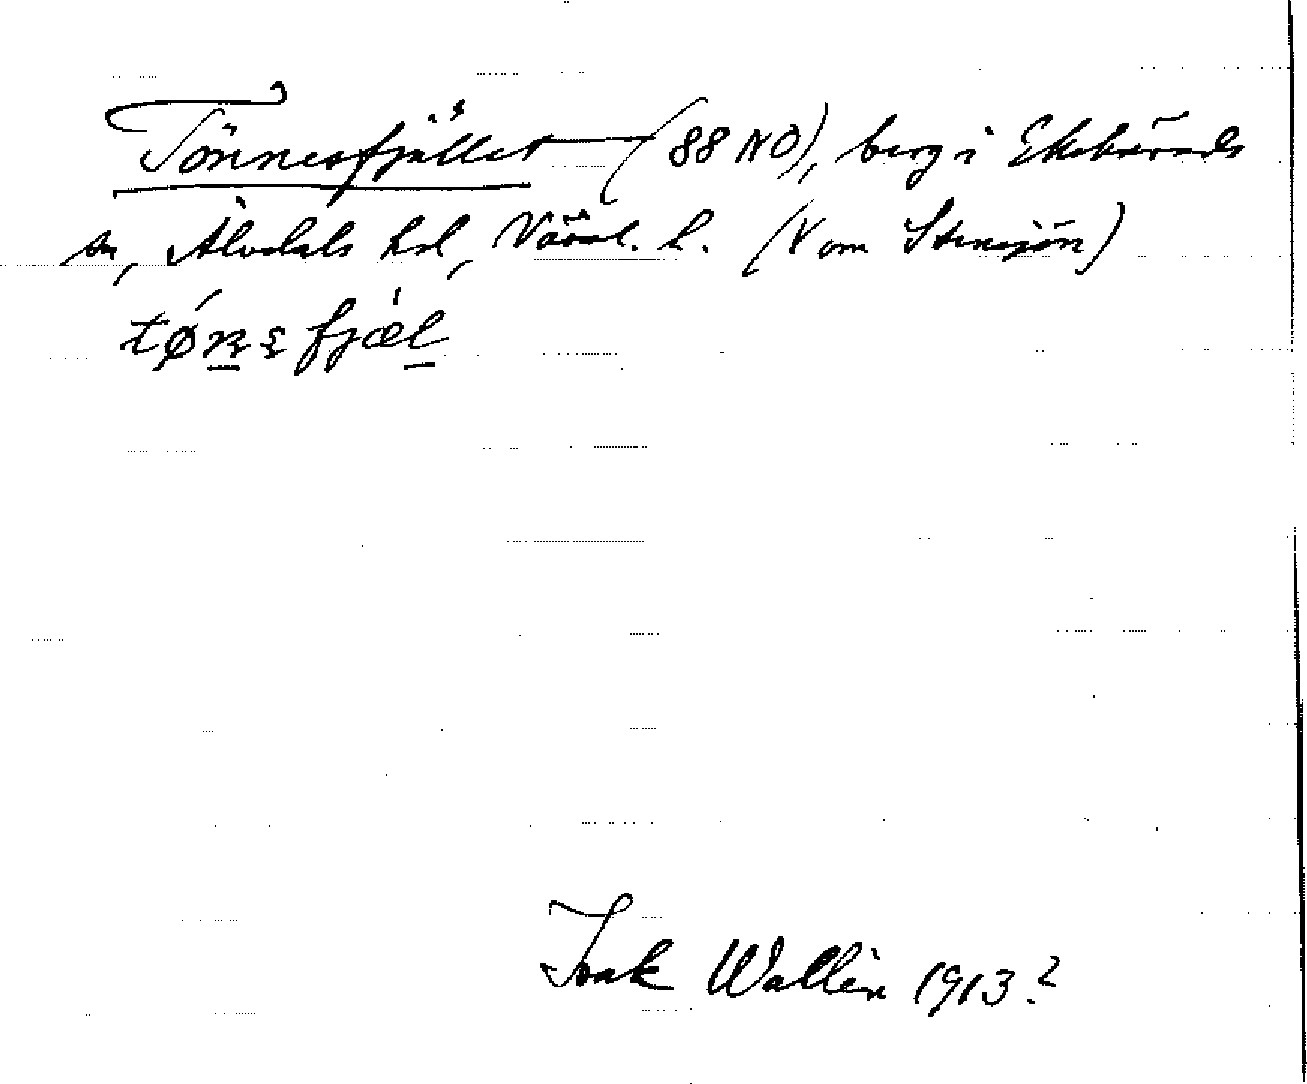 Tönnesfjället (88 NO), berg i Ekshärads
sn, Älvdals hd, Värml. l. (V om Stensjön)
tǿnɛfjæ̀l
Isak Wallin 1913?